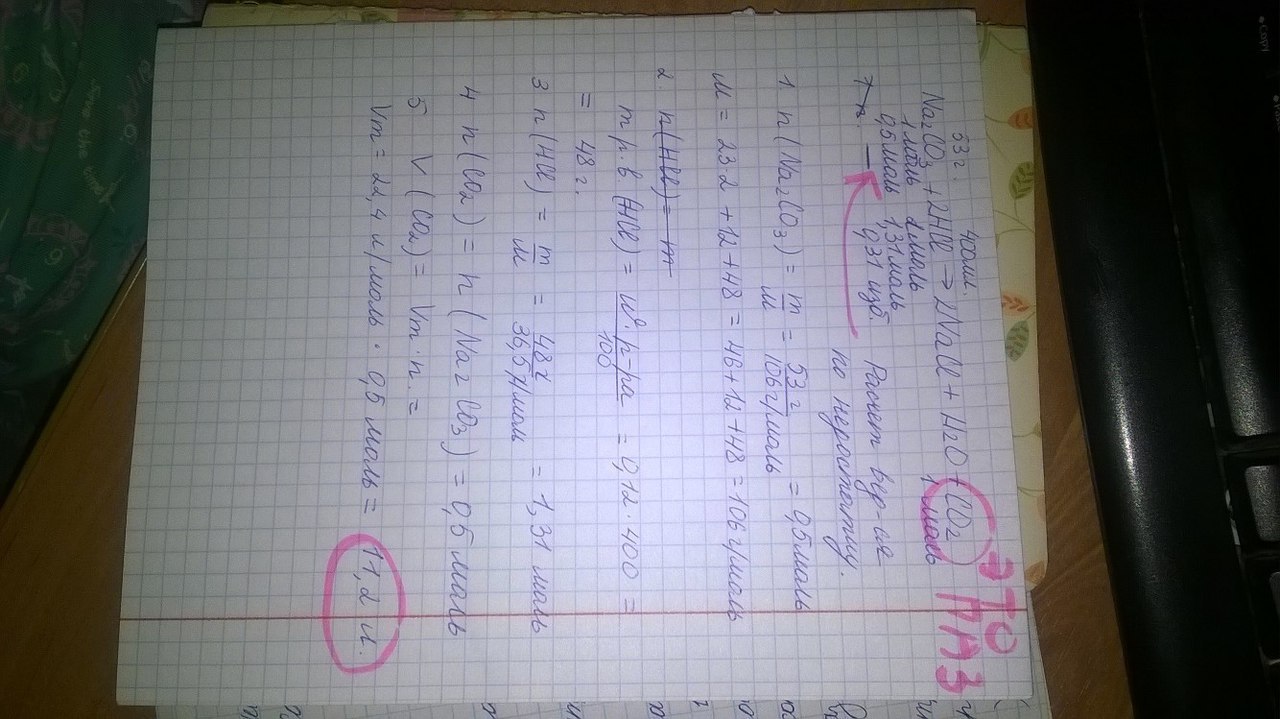 53г. 400мл.
Na2CO3 + 2HCl → 2NaCl + H2O + CO2
1 моль 2 моль 1 моль
0,5 моль 1,31 моль
0,31 изб.
Это ГАЗ
Расчет вед-ся
по недостатку.
1 n(Na2CO3) = m/M = 53г/106г/моль = 0,5 моль
M = 23·2 + 12 + 48 = 46 + 12 + 48 = 106 г/моль
2. n(HCl) = m
m р.в (HCl) = w·р-ра/100 = 0,12·400 =
= 48 г.
3 n(HCl) = m/M = 48г/36,5г/моль = 1,31 моль
4 n(CO2) = n(Na2CO3) = 0,5 моль
5 V(CO2) = Vm·n. =
Vm = 22,4 л/моль · 0,5 моль = 11,2 л.